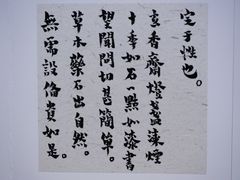 定于性也。
玄香齋燈盞漆煙
十年如石一點如漆書
望聞問切甚簡單。
草木藥石出自然。
無需設俻貴如是。